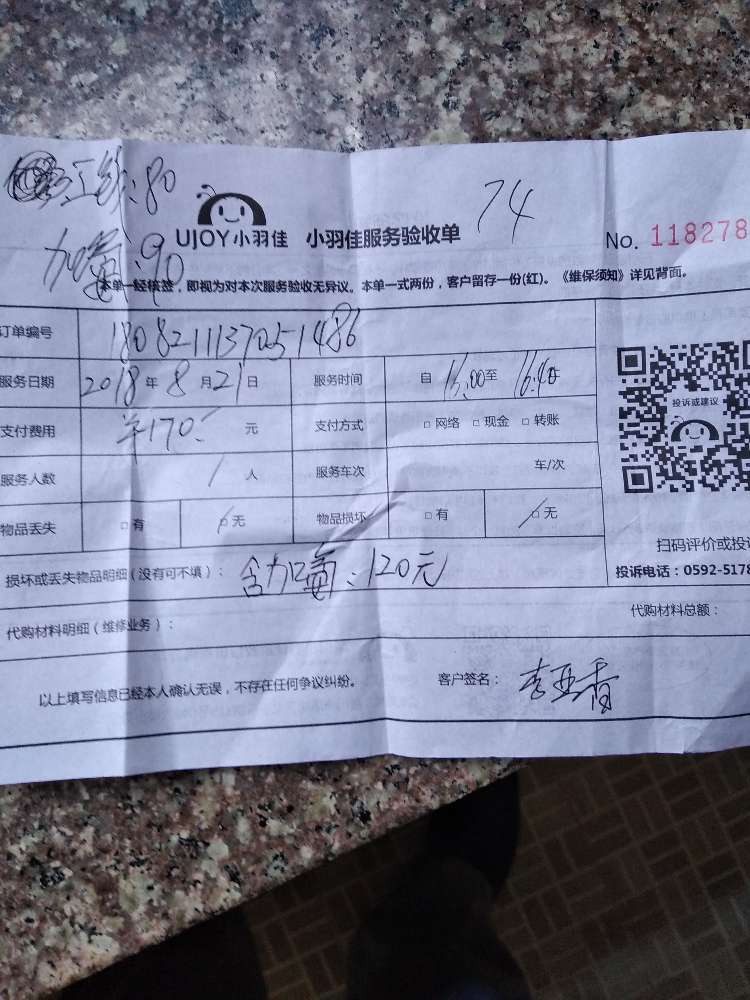 工钱:80
加氟:90
74
UJOY小羽佳 小羽佳服务验收单
No. 118278
本单一经核签,即视为对本次服务验收无异议。本单一式两份,客户留存一份(红)。《维保须知》详见背面。
订单编号 18082111370251486
服务日期 2018年8月21日 服务时间 自 15:00至 16:40
支付费用 ¥170.- 元 支付方式 □网络 □现金 □转账
服务人数 1 人 服务车次 车/次
物品丢失 □有 □无 物品损坏 □有 □无
投诉或建议
扫码评价或投诉
损坏或丢失物品明细(没有可不填): 含加氟:120元
投诉电话:0592-5178
代购材料明细(维修业务): 代购材料总额:
以上填写信息已经本人确认无误,不存在任何争议纠纷。 客户签名: 李亚香